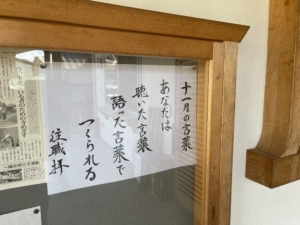 十一月の言葉
あなたは
聴いた言葉
語った言葉で
つくられる
住職拝